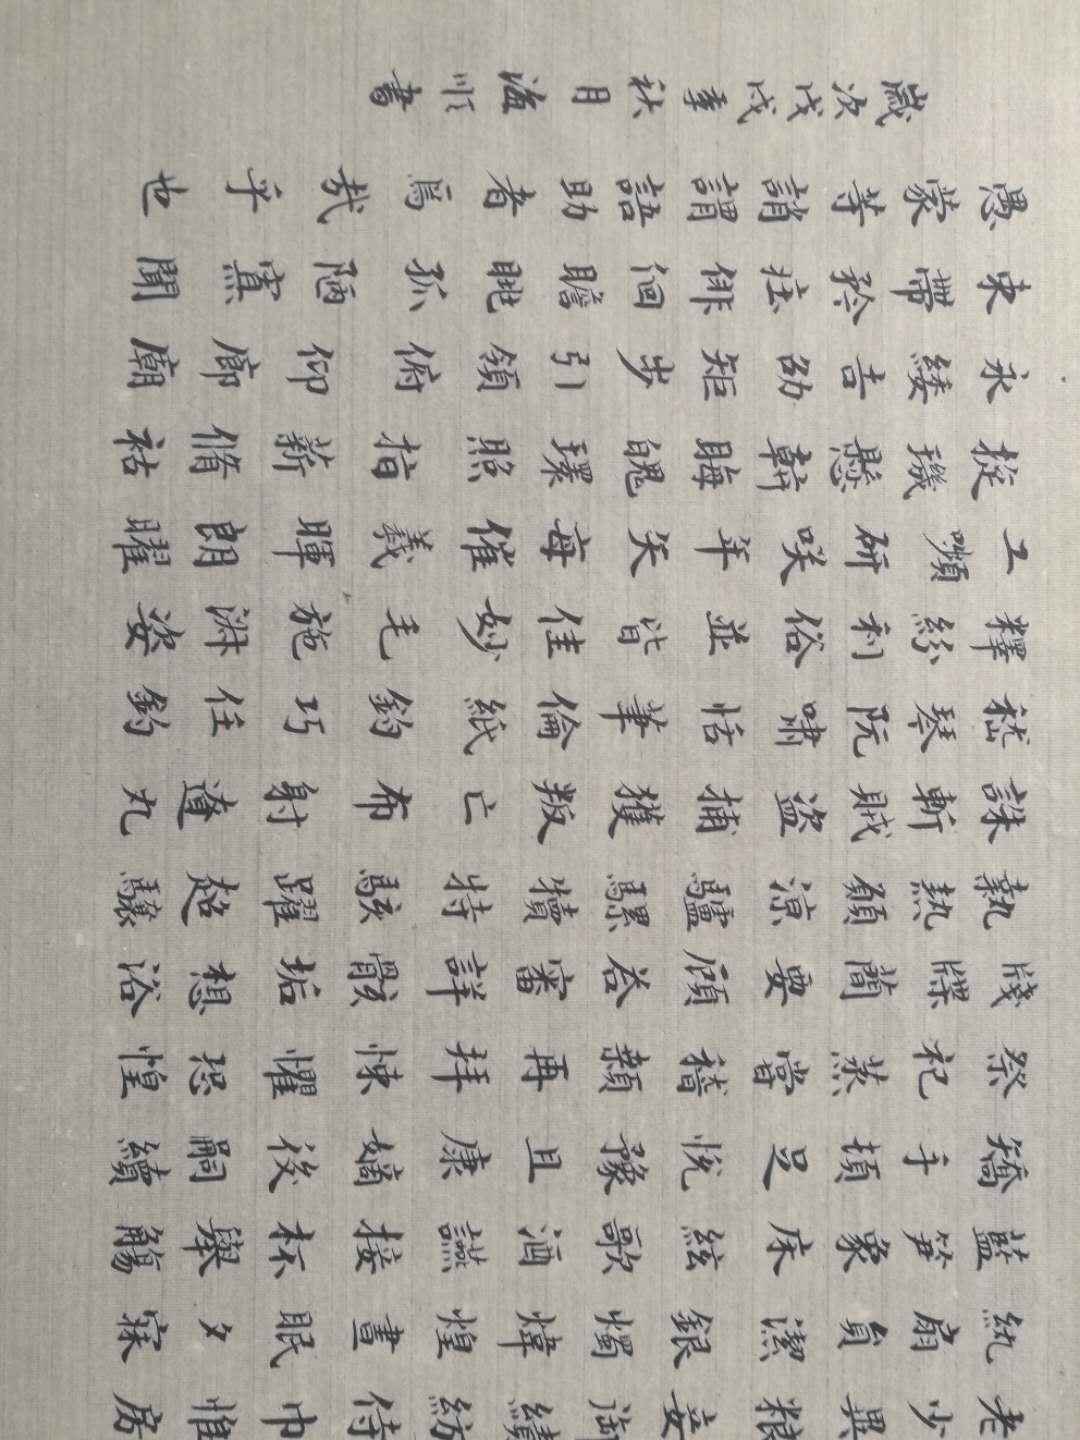 老少異粮妾御績紡侍巾帷房
紈扇員潔銀燭煒煌晝眠夕寐
藍笋象床絃歌酒讌接杯舉觴
矯手頓足悅豫且康嫡後嗣續
祭祀蒸嘗稽顙再拜悚懼恐惶
牋牒簡要顧荅審詳骸垢想浴
執熱願涼驢騾犢特駭躍超驤
誅斬賊盜捕獲叛亡布射遼丸
嵇琴阮嘯恬筆倫紙鈞巧任釣
釋紛利俗並皆佳妙毛施淑姿
工嚬研咲年矢每催羲暉朗曜
旋璣懸斡晦魄環照指薪脩祜
永綏吉劭矩步引領俯仰廊廟
束帶矜莊徘徊瞻眺孤陋寡聞
愚蒙等誚謂語助者焉哉乎也
歲次戊戌季秋月海順書